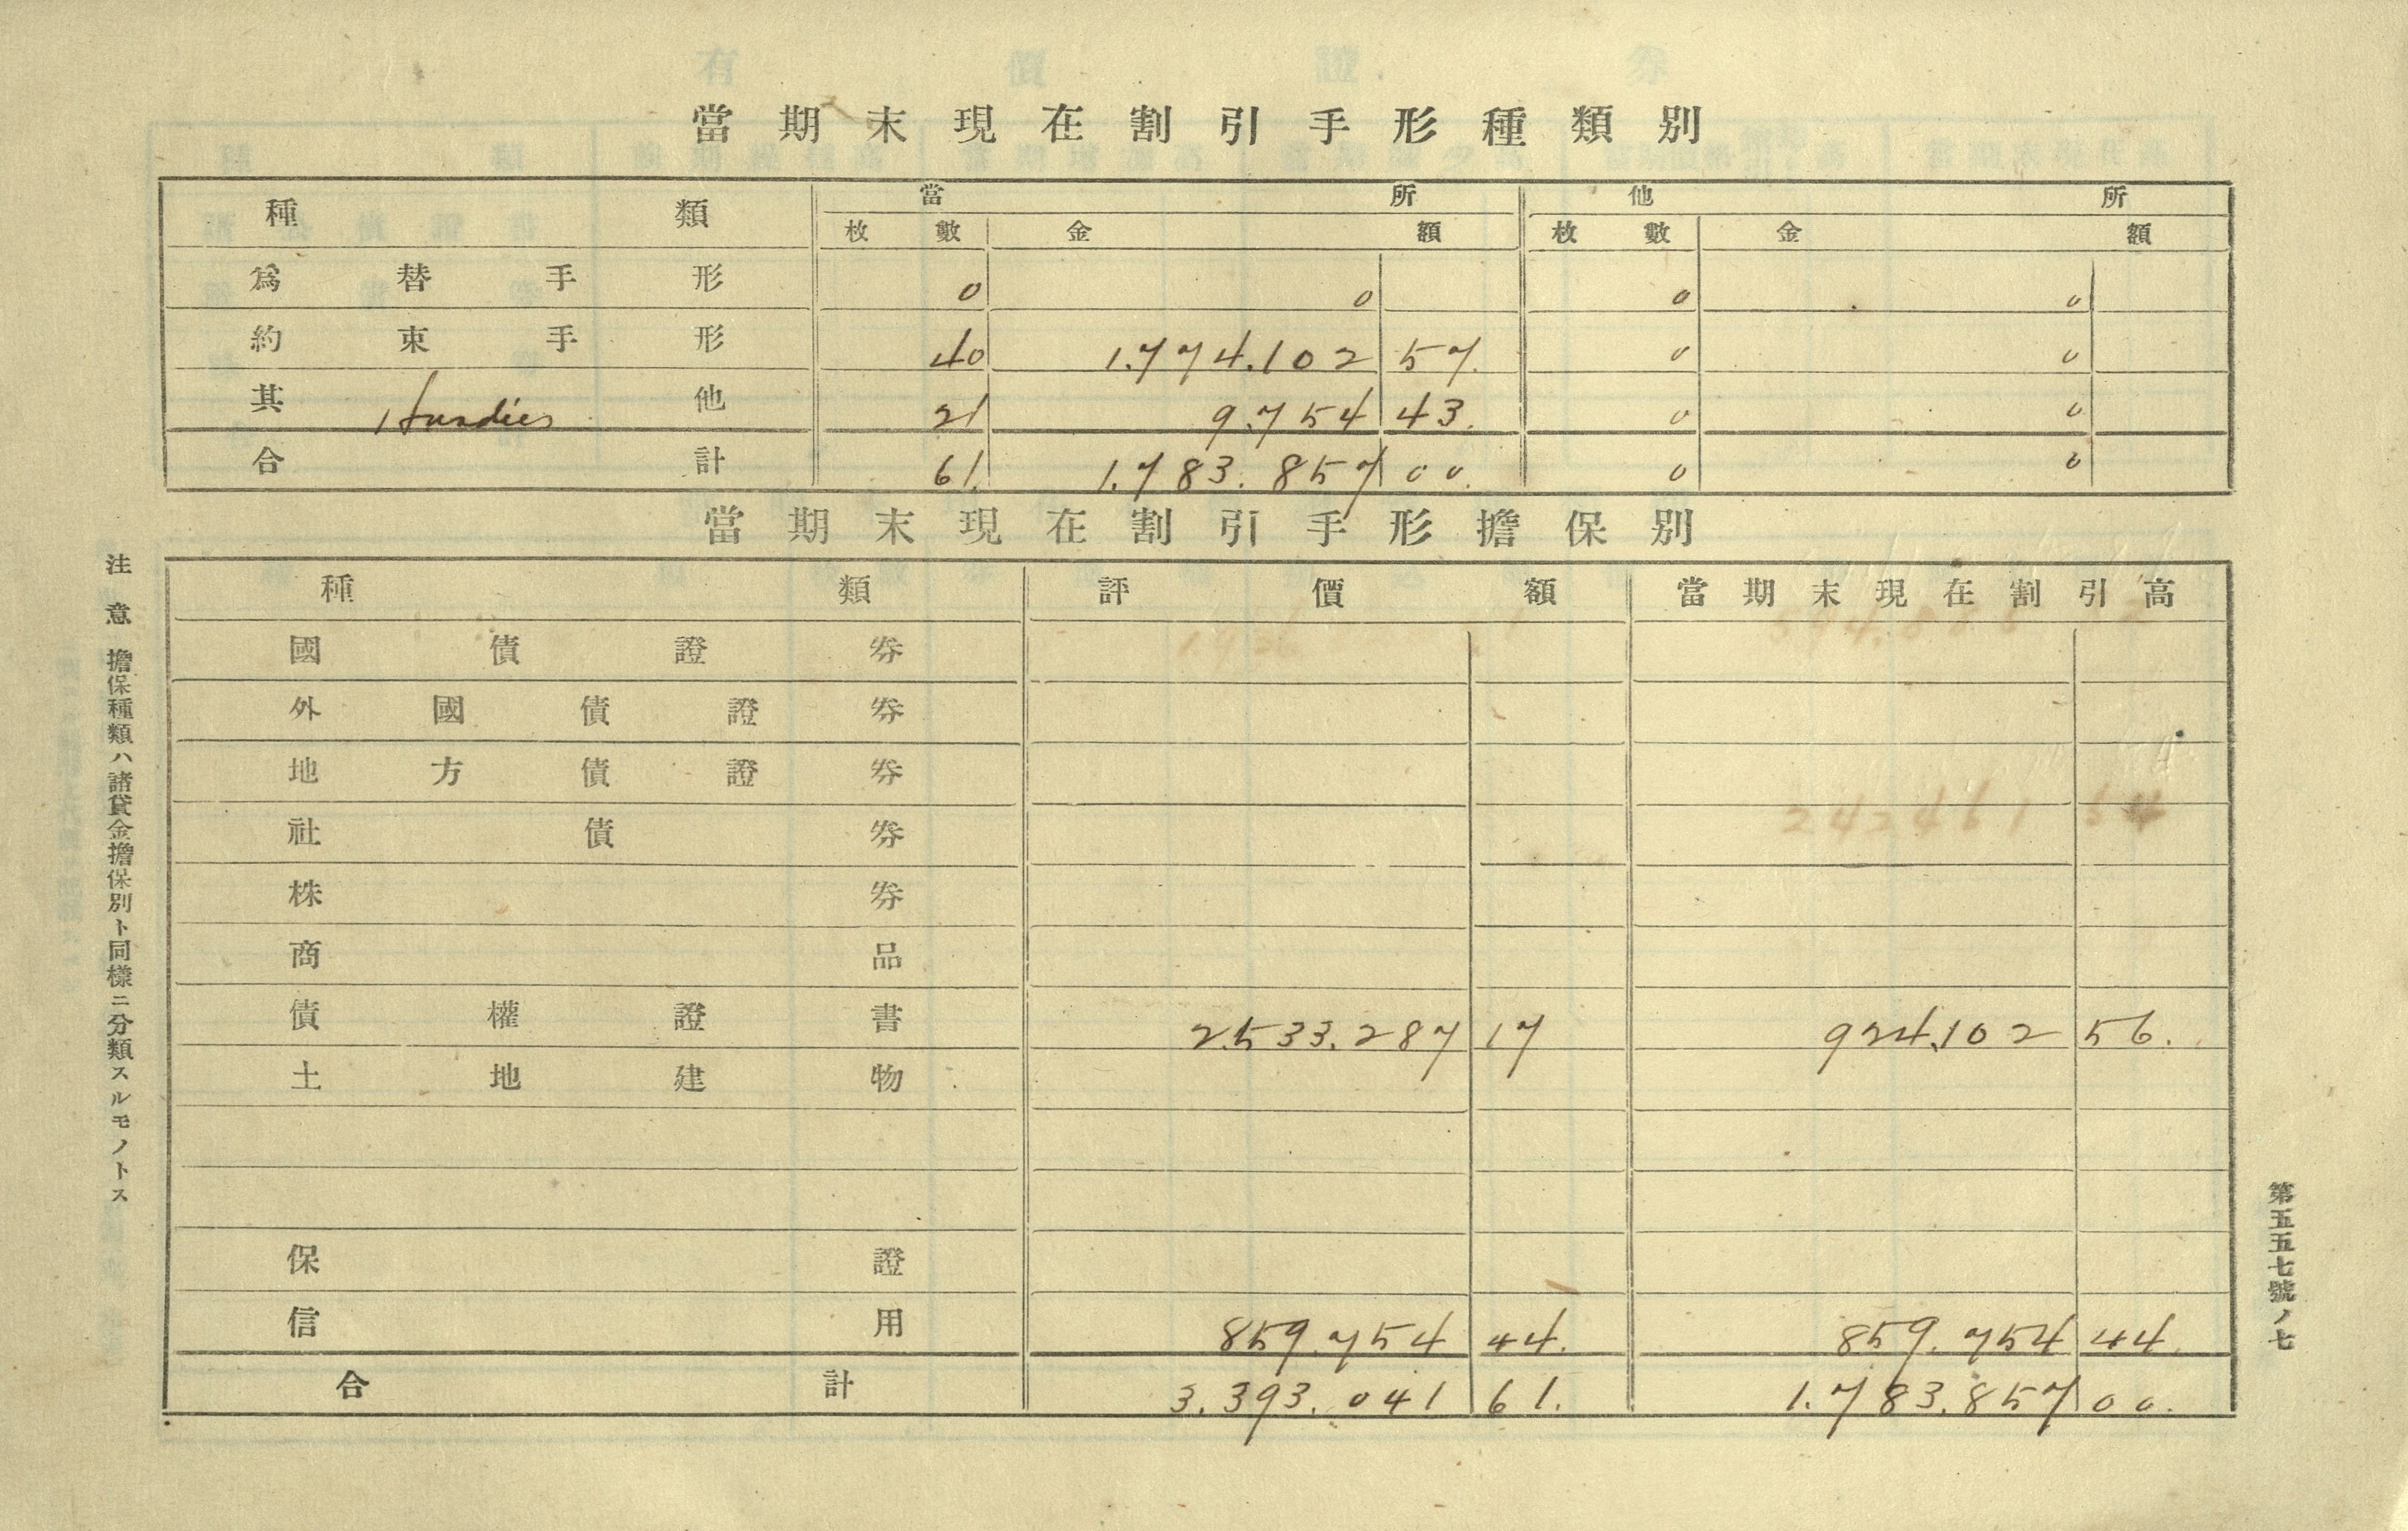 當期末現在割引手形種類別
種類 當所 他所
枚數 金額 枚數 金額
爲替手形 0 0 0 0
約束手形 40 1.774.102 57. 0 0
其他 Hundies 21 9.754 43. 0 0
合計 61. 1.783.857 00. 0 0
當期末現在割引手形擔保別
種類 評價額 當期末現在割引高
國債證券
外國債證券
地方債證券
社債券
株券
商品
債權證書 2.533.287 17 924.102 56.
土地建物
保證
信用 859.754 44. 859.754 44.
合計 3.393.041 61. 1.783.857 00.
注意 擔保種類ハ諸貸金擔保別ト同樣ニ分類スルモノトス
第五五七號ノ七